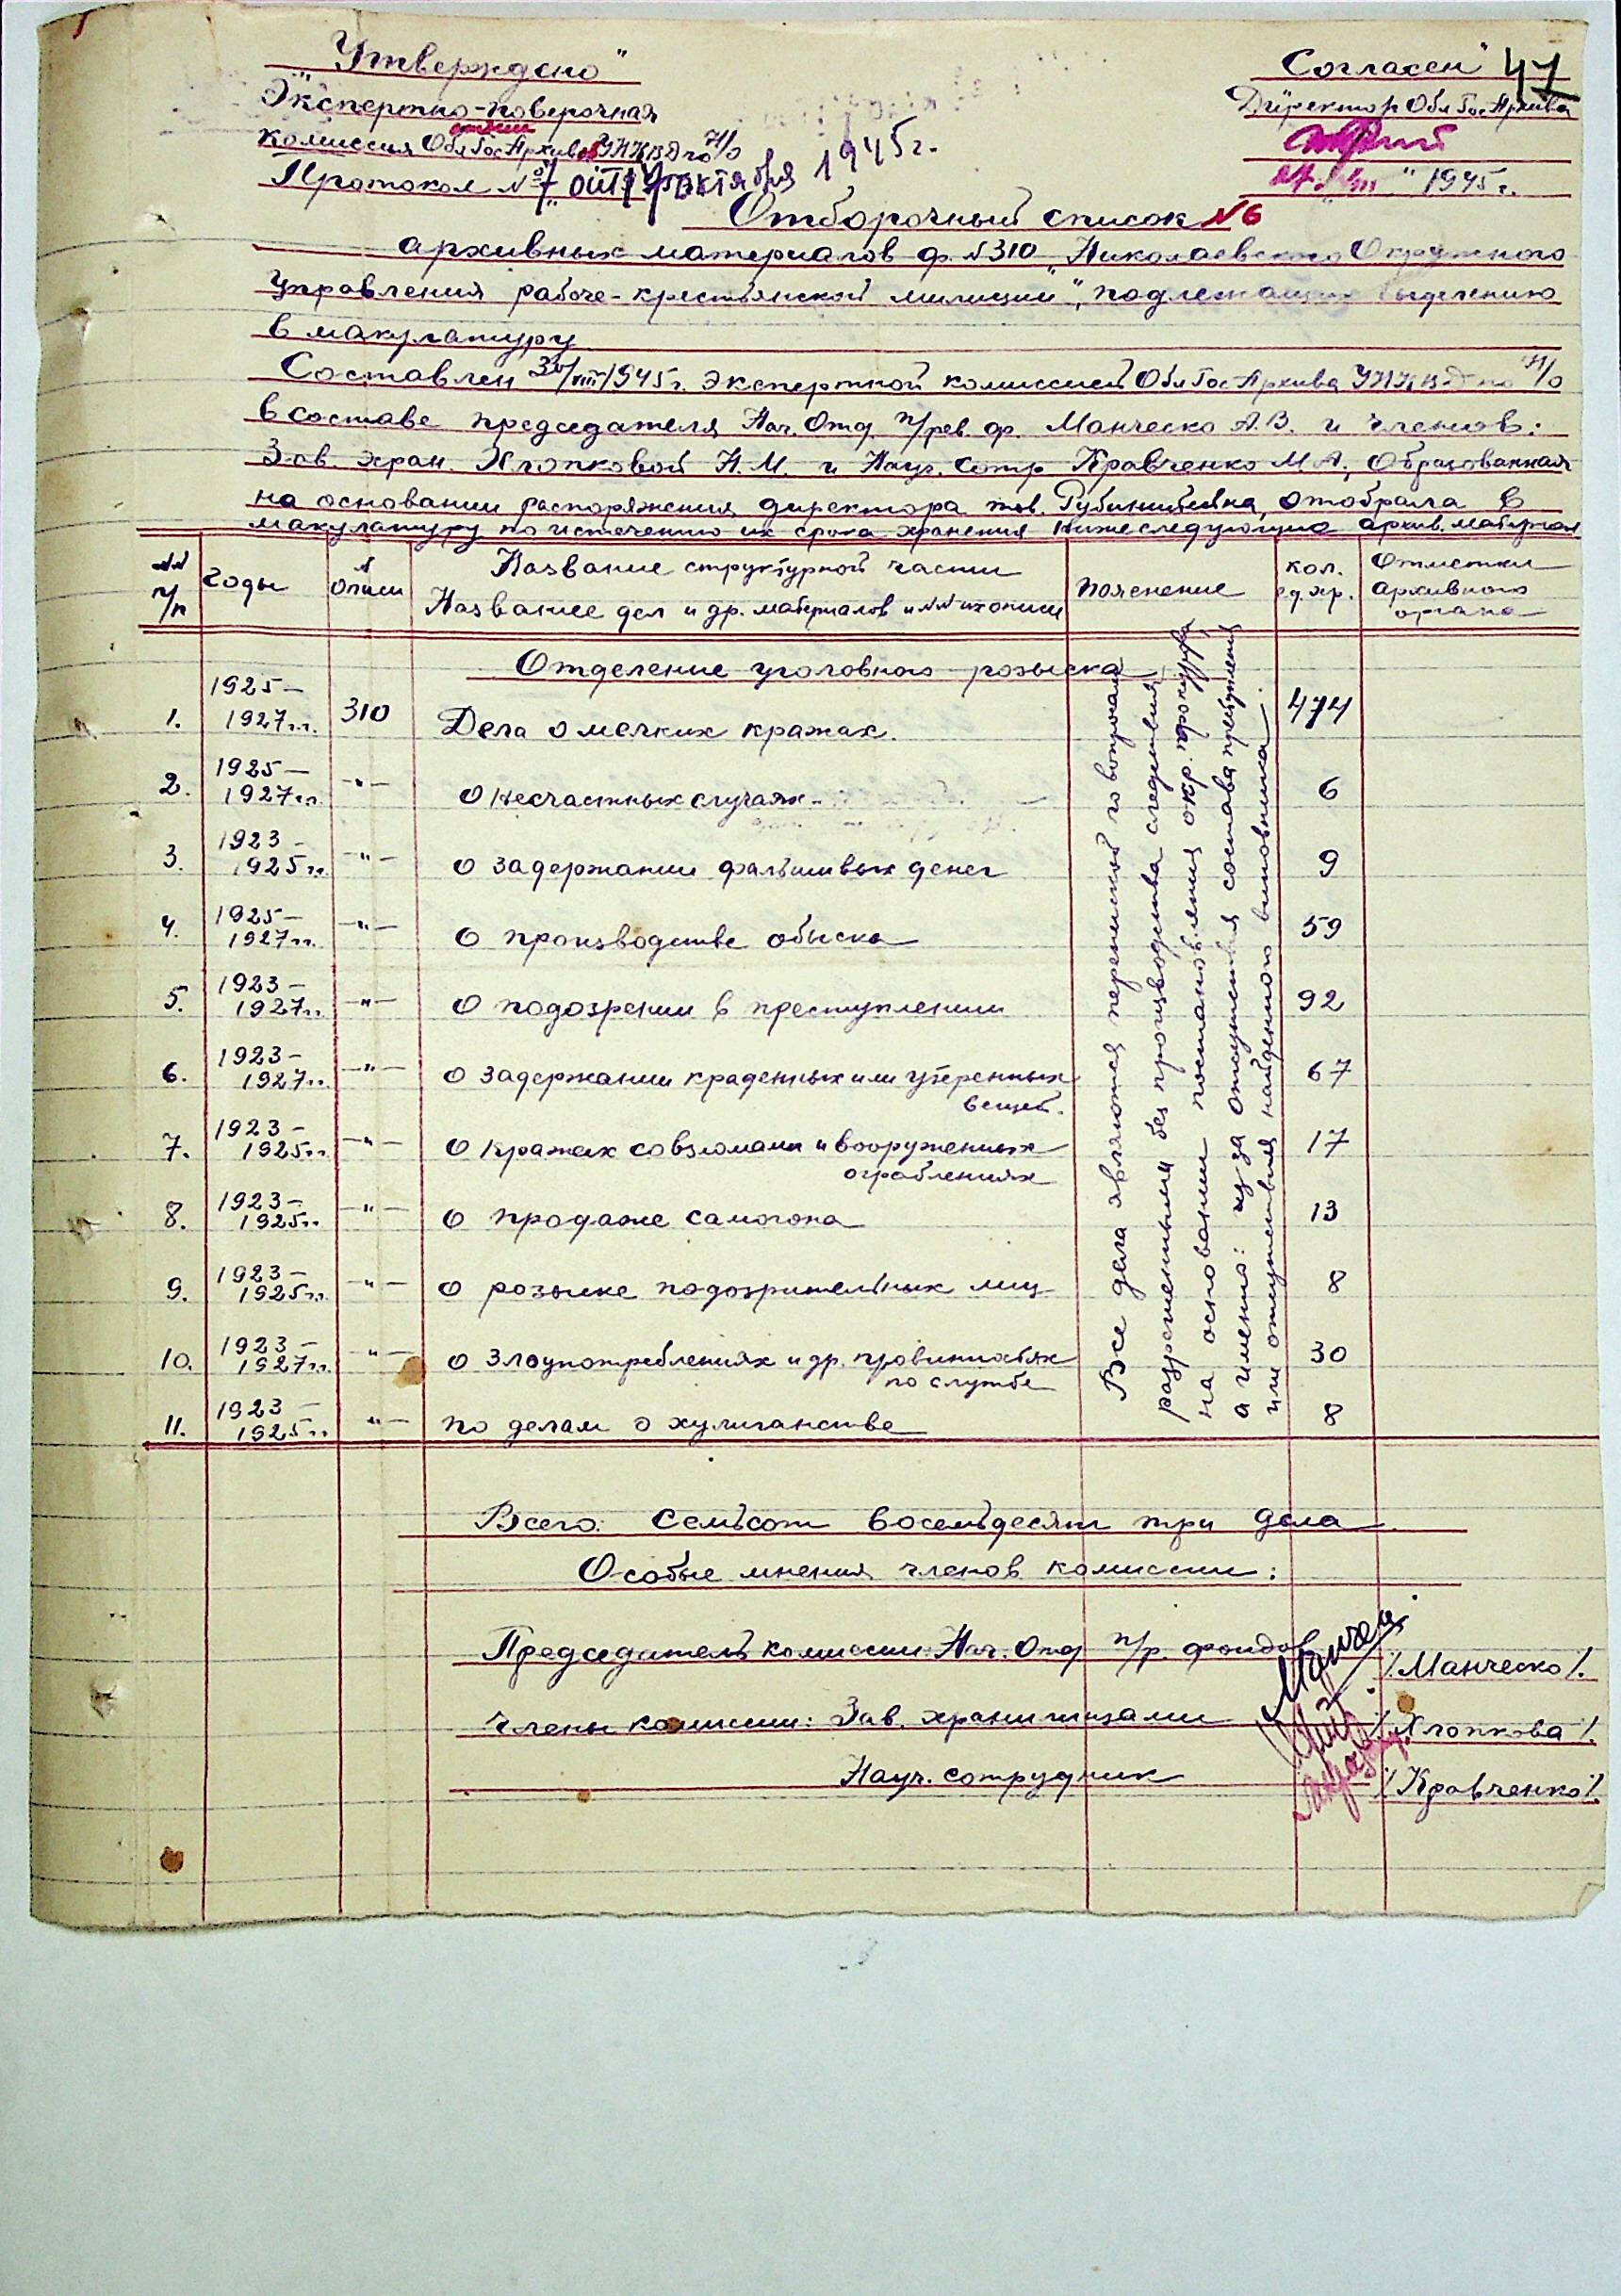 „Утверждено"
Экспертно-поверочная
комиссия Обл Гос Архивов УНКВД по Н/О
Протокол № 7 от 19 октября 1945 г.
„Согласен" 47
Директор Обл Гос. Архива
" 1945 г.
Отборочный список № 6
архивных материалов ф. № 310 „Николаевского Окружного
Управления рабоче-крестьянской милиции", подлежащих выделению
в макулатуру
Составлен 30/VIII/1945 г. экспертной комиссией Обл Гос Архива УНКВД по Н/О
в составе председателя Нач. Отд. п/рев. ф. Манческо А.В. и членов:
Зав. хран. Хлопковой Н.М. и Науч. сотр Кравченко М.А., Образованная
на основании распоряжения директора тов. отобрала в
макулатуру по истечению их срока хранения нижеследующие архив. материал
№№ п/п
годы
№ описи
Название структурной части
Название дел и др. материалов и №№ их описи
Пояснение
кол. ед. хр.
Отметки архивного органа
Отделение уголовного розыска
1. 1925 – 1927 г.г. 310 Дела о мелких кражах. 474
2. 1925 – 1927 г.г. –"– О несчастных случаях 6
3. 1923 – 1925 г.г. –"– О задержании фальшивых денег 9
4. 1925 – 1927 г.г. –"– О производстве обыска 59
5. 1923 – 1927 г.г. –"– О подозрении в преступлении 92
6. 1923 – 1927 г.г. –"– О задержании краденных или утерянных 67
вещей.
7. 1923 – 1925 г.г. –"– О кражах со взломами и вооруженных 17
ограблениях
8. 1923 – 1925 г.г. –"– О продаже самогона 13
9. 1923 – 1925 г.г. –"– О розыске подозрительных лиц 8
10. 1923 – 1927 г.г. –"– О злоупотреблениях и др. провинностях 30
по службе
11. 1923 – 1925 г.г. –"– по делам о хулиганстве 8
Все дела являются перепиской по вопросам
разрешенными без производства следствия,
на основании постановления окр. прокурора
а именно: из за отсутствия состава преступления
или отсутствия найденного виновника.
Всего: Семьсот восемьдесят три дела.
Особые мнения членов комиссии:
Председатель комиссии: Нач. Отд п/р. фондов /Манческо/.
Члены комиссии: Зав. хранилищами /Хлопкова/.
Науч. сотрудник /Кравченко/.